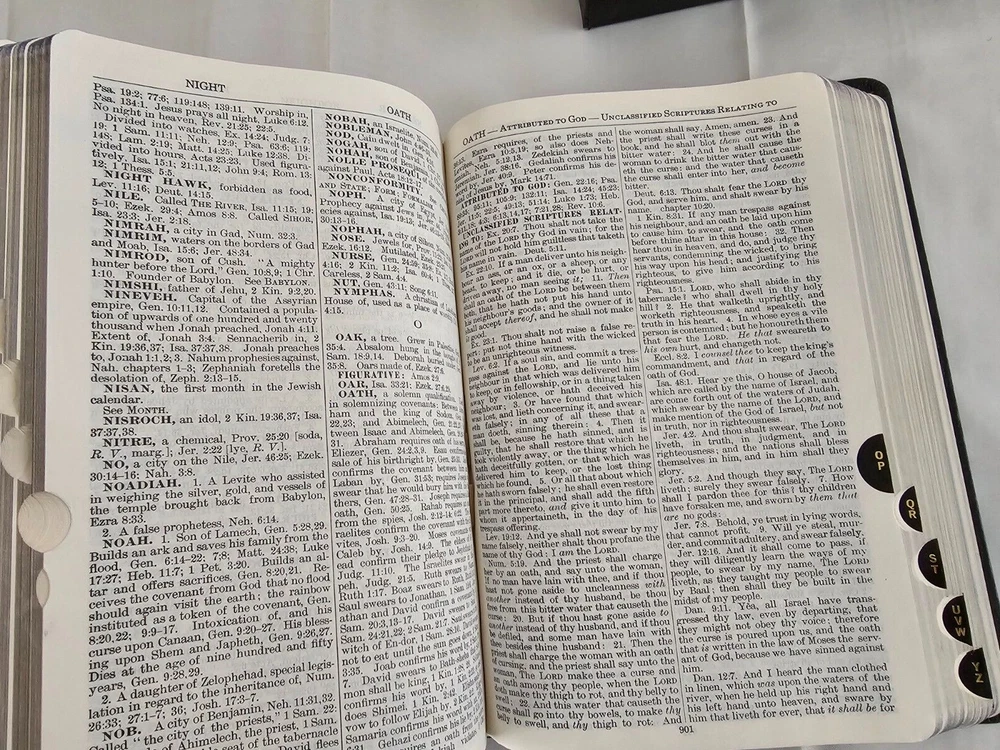 NIGHT
OATH
Psa. 19:2; 77:6; 119:148; 139:11. Worship in,
Psa. 134:1. Jesus prays all night, Luke 6:12.
No night in heaven, Rev. 21:25; 22:5.
Divided into watches, Ex. 14:24; Judg. 7:
19; 1 Sam. 11:11; Neh. 12:9; Psa. 63:6; 119:
148; Lam. 2:19; Matt. 14:25; Luke 12:38. Di-
vided into hours, Acts 23:23. Used figura-
tively, Isa. 15:1; 21:11,12; John 9:4; Rom. 13:
12; 1 Thess. 5:5.
NIGHT HAWK, forbidden as food,
Lev. 11:16; Deut. 14:15.
NILE. Called THE RIVER, Isa. 11:15; 19:
5–10; Ezek. 29:4; Amos 8:8. Called SIHOR,
Isa. 23:3; Jer. 2:18.
NIMRAH, a city in Gad, Num. 32:3.
NIMRIM, waters on the borders of Gad
and Moab, Isa. 15:6; Jer. 48:34.
NIMROD, son of Cush. "A mighty
hunter before the Lord," Gen. 10:8,9; 1 Chr.
1:10. Founder of Babylon. See BABYLON.
NIMSHI, father of Jehu, 2 Kin. 9:2,20.
NINEVEH. Capital of the Assyrian
empire, Gen. 10:11,12. Contained a popula-
tion of upwards of one hundred and twenty
thousand when Jonah preached, Jonah 4:11.
Extent of, Jonah 3:4. Sennacherib in, 2
Kin. 19:36,37; Isa. 37:37,38. Jonah preaches
to, Jonah 1:1,2; 3. Nahum prophesies against,
Nah. chapters 1–3; Zephaniah foretells the
desolation of, Zeph. 2:13–15.
NISAN, the first month in the Jewish
calendar.
See MONTH.
NISROCH, an idol, 2 Kin. 19:36,37; Isa.
37:37,38.
NITRE, a chemical, Prov. 25:20 [soda,
R. V., marg.]; Jer. 2:22 [lye, R. V.].
NO, a city on the Nile, Jer. 46:25; Ezek.
30:14–16; Nah. 3:8.
NOADIAH. 1. A Levite who assisted
in weighing the silver, gold, and vessels of
the temple brought back from Babylon,
Ezra 8:33.
2. A false prophetess, Neh. 6:14.
NOAH. 1. Son of Lamech, Gen. 5:28,29.
Builds an ark and saves his family from the
flood, Gen. 6:14–22; 7:8; Matt. 24:38; Luke
17:27; Heb. 11:7; 1 Pet. 3:20. Builds an al-
tar and offers sacrifices, Gen. 8:20,21. Re-
ceives the covenant from God that no flood
should again visit the earth; the rainbow
instituted as a token of the covenant, Gen.
8:20,22; 9:9–17. Intoxication of, and his
curse upon Canaan, Gen. 9:20–27. His bless-
ing upon Shem and Japheth, Gen. 9:26,27.
Dies at the age of nine hundred and fifty
years, Gen. 9:28,29.
2. A daughter of Zelophehad, special legis-
lation in regard to the inheritance of, Num.
26:33; 27:1–7; 36; Josh. 17:3–7.
NOB. A city of Benjamin, Neh. 11:31,32.
Called "the city of the priests," 1 Sam. 22:
of Ahimelech, the priest, 1 Sam.
seat of the tabernacle
David flees
NOBAH, an Israelite,
NOBLEMAN,
NOD,
NOGAH, son of David
NOHAH, son of
NOLLE PROSEQUI
against Paul, Acts 18:
NONCONFORMITY.
AND STATE; FORM; FORMALITY
NOPH. A city of
Prophecy against Jews in,
ecies against, Isa. 19:13; Jer.
30:13–16.
NOPHAH, a city of Sihon,
NOSE. Jewels for,
Ezek. 16:12. Mutilated, Ezek.
NURSE, Gen. 24:59; 35:8;
4:16; 2 Kin. 11:2; Isa.
Careless, 2 Sam. 4:4.
NUT, Gen. 43:11; Song 6:11.
NYMPHAS. A christian
House of, used as a place of
4:15.
O
OAK, a tree. Grew in Palestine,
35:4. Absalom hung in the
Sam. 18:9,14. Deborah buried
35:8. Oars made of, Ezek. 27:6.
FIGURATIVE: Amos 2:9.
OAR, Isa. 33:21; Ezek. 27:6,
OATH, a solemn qualification
in solemnizing covenants: Between
ham and the king of Sodom, Gen.
22,23; and Abimelech, Gen. 21:22,
tween Isaac and Abimelech, Gen.
31. Abraham requires oath of
Eliezer, Gen. 24:2,3,9. Esau confirms
sale of his birthright by, Gen. 25:33.
confirms the covenant between
Laban by, Gen. 31:53; requires
swear that he would bury him with
thers, Gen. 47:28–31. Joseph requires
oath, Gen. 50:25. Rahab requires
from the spies, Josh. 2:12–14;
raelites confirm the covenant with
vites, Josh. 9:3–20. Moses covenants
Caleb by, Josh. 14:9. The elders
ead confirm their pledge to Jephthah
Judg. 11:10. The Israelites swear
peh, Judg. 21:5. Ruth swears to
Ruth 1:17. Boaz swears to Ruth,
Saul swears to Jonathan, 1 Sam.
athan and David confirm a
Sam. 20:3,13–17. David swears to
Sam. 24:21,22; 2 Sam. 21:7. Saul
witch of En-dor, 1 Sam. 28:10.
not to eat until the sun goes
3:35. Joab confirms his word by
7. David swears to Bath-sheba
mon shall be king, 1 Kin. 1:
confirms his word by, 1
does Shimei, 1 Kin. 2:42.
vow to follow Elijah by, 2 Kin.
Gehazi confirms his
requires an oath
OATH — ATTRIBUTED TO GOD — UNCLASSIFIED SCRIPTURES RELATING TO
Ezra requires, of the priests and
Ezra 10:5,19; so also does Neh-
Neh. 5:12,13. Zedekiah swears to
Jer. 38:16. Gedaliah confirms his
by, Jer. 40:9. Peter confirms his de-
Jesus by, Mark 14:71.
ATTRIBUTED TO GOD: Gen. 22:16; Psa.
35; 95:11; 105:9; 132:11; Isa. 14:24; 45:23;
11:5; 22:5; 49:13; 51:14; Luke 1:73; Heb.
4:3; 6:13,14,17; 7:21,28; Rev. 10:6.
UNCLASSIFIED SCRIPTURES RELAT-
ING TO: Ex. 20:7. Thou shalt not take the
of the LORD thy God in vain; for the
LORD will not hold him guiltless that taketh
name in vain. Deut. 5:11.
Ex. 22:10. If a man deliver unto his neigh-
bour an ass, or an ox, or a sheep, or any
to keep; and it die, or be hurt, or
driven away, no man seeing it; 11. Then
an oath of the LORD be between them
that he hath not put his hand unto
his neighbour's goods; and the owner of it
shall accept thereof, and he shall not make
it good.
Ex. 23:1. Thou shalt not raise a false re-
port: put not thine hand with the wicked
to be an unrighteous witness.
Lev. 6:2. If a soul sin, and commit a tres-
pass against the LORD, and lie unto his
neighbour in that which was delivered him
to keep, or in fellowship, or in a thing taken
away by violence, or hath deceived his
neighbour; 3. Or have found that which
was lost, and lieth concerning it, and swear-
eth falsely; in any of all these that a
man doeth, sinning therein: 4. Then it
shall be, because he hath sinned, and is
guilty, that he shall restore that which he
took violently away, or the thing which he
hath deceitfully gotten, or that which was
delivered him to keep, or the lost thing
which he found, 5. Or all that about which
he hath sworn falsely; he shall even restore
it in the principal, and shall add the fifth
part more thereto, and give it unto him to
whom it appertaineth, in the day of his
trespass offering.
Lev. 19:12. And ye shall not swear by my
name falsely, neither shalt thou profane the
name of thy God: I am the LORD.
Num. 5:19. And the priest shall charge
her by an oath, and say unto the woman,
If no man have lain with thee, and if thou
hast not gone aside to uncleanness with
another instead of thy husband, be thou
free from this bitter water that causeth the
curse: 20. But if thou hast gone aside to
another instead of thy husband, and if thou
be defiled, and some man have lain with
thee besides thine husband: 21. Then the
priest shall charge the woman with an oath
of cursing, and the priest shall say unto the
woman, The LORD make thee a curse and
an oath among thy people, when the LORD
doth make thy thigh to rot, and thy belly to
swell; 22. And this water that causeth the
curse shall go into thy bowels, to make thy
belly to swell, and thy thigh to rot: And
the woman shall say, Amen, amen. 23. And
the priest shall write these curses in a
book, and he shall blot them out with the
bitter water: 24. And he shall cause the
woman to drink the bitter water that caus-
eth the curse: and the water that causeth
the curse shall enter into her, and become
bitter.
Deut. 6:13. Thou shalt fear the LORD thy
God, and serve him, and shalt swear by his
name. chapter 10:20.
1 Kin. 8:31. If any man trespass against
his neighbour, and an oath be laid upon him
to cause him to swear, and the oath come
before thine altar in this house: 32. Then
hear thou in heaven, and do, and judge thy
servants, condemning the wicked, to bring
his way upon his head; and justifying the
righteous, to give him according to his
righteousness.
Psa. 15:1. LORD, who shall abide in thy
tabernacle? who shall dwell in thy holy
hill? 2. He that walketh uprightly, and
worketh righteousness, and speaketh the
truth in his heart. 4. In whose eyes a vile
person is contemned; but he honoureth them
that fear the LORD. He that sweareth to
his own hurt, and changeth not.
Eccl. 8:2. I counsel thee to keep the king's
commandment, and that in regard of the
oath of God.
Isa. 48:1. Hear ye this, O house of Jacob,
which are called by the name of Israel, and
are come forth out of the waters of Judah,
which swear by the name of the LORD, and
make mention of the God of Israel, but not
in truth, nor in righteousness.
Jer. 4:2. And thou shalt swear, The LORD
liveth, in truth, in judgment, and in
righteousness; and the nations shall bless
themselves in him, and in him shall they
glory.
Jer. 5:2. And though they say, The LORD
liveth; surely they swear falsely. 7. How
shall I pardon thee for this? thy children
have forsaken me, and sworn by them that
are no gods:
Jer. 7:8. Behold, ye trust in lying words,
that cannot profit. 9. Will ye steal, mur-
der, and commit adultery, and swear falsely,
Jer. 12:16. And it shall come to pass, if
they will diligently learn the ways of my
people, to swear by my name, The LORD
liveth, as they taught my people to swear
by Baal; then shall they be built in the
midst of my people.
Dan. 9:11. Yea, all Israel have trans-
gressed thy law, even by departing, that
they might not obey thy voice; therefore
the curse is poured upon us, and the oath
that is written in the law of Moses the serv-
ant of God, because we have sinned against
him.
Dan. 12:7. And I heard the man clothed
in linen, which was upon the waters of the
river, when he held up his right hand and
his left hand unto heaven, and sware by
him that liveth for ever, that it shall be for
901
O
P
Q
R
S
T
U
V
W
Y
Z